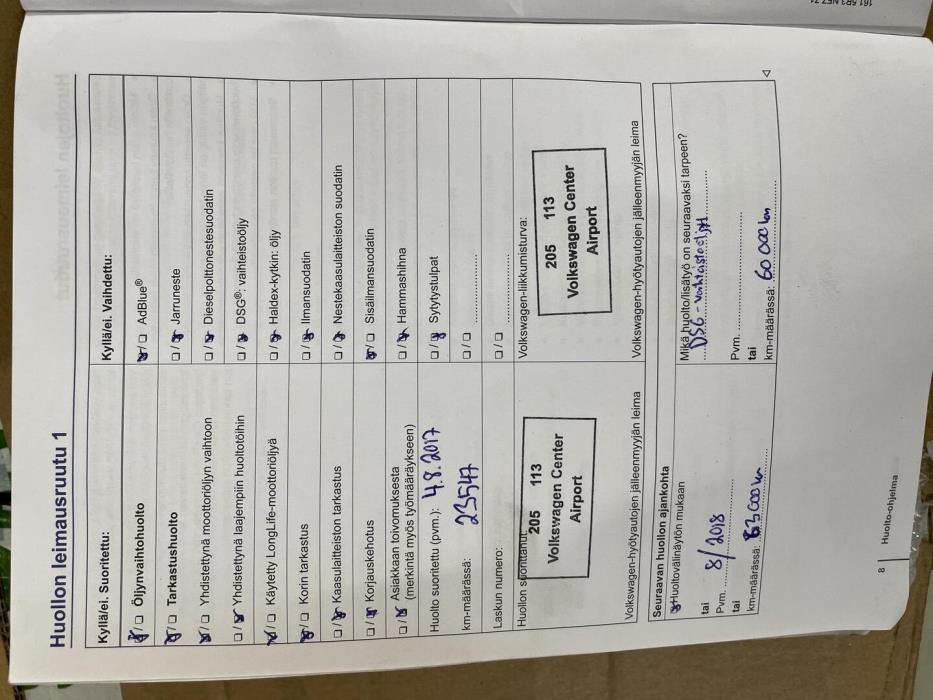 Huollon leimausruutu 1
Kyllä/ei. Suoritettu:
Kyllä/ei. Vaihdettu:
☒/☐ Öljynvaihtohuolto
☒/☐ AdBlue®
☒/☐ Tarkastushuolto
☐/☒ Jarruneste
☒/☐ Yhdistettynä moottoriöljyn vaihtoon
☐/☒ Dieselpolttonestesuodatin
☐/☒ Yhdistettynä laajempiin huoltotöihin
☐/☒ DSG®: vaihteistoöljy
☒/☐ Käytetty LongLife-moottoriöljyä
☐/☒ Haldex-kytkin: öljy
☒/☐ Korin tarkastus
☐/☒ Ilmansuodatin
☐/☒ Kaasulaitteiston tarkastus
☐/☒ Nestekaasulaitteiston suodatin
☐/☒ Korjauskehotus
☒/☐ Sisäilmansuodatin
☐/☒ Asiakkaan toivomuksesta
(merkintä myös työmääräykseen)
☐/☒ Hammashihna
Huolto suoritettu (pvm.): 4.8.2017
☐/☒ Sytytystulpat
km-määrässä: 23547
☐/☐ ..............
Laskun numero:
☐/☐ ..............
Huollon suorittanut:
205 113
Volkswagen Center
Airport
Volkswagen-hyötyautojen jälleenmyyjän leima
Volkswagen-liikkumisturva:
205 113
Volkswagen Center
Airport
Volkswagen-hyötyautojen jälleenmyyjän leima
Seuraavan huollon ajankohta
☒ Huoltovälinäytön mukaan
tai
Pvm. 8/2018
tai
km-määrässä: 53000 km
Mikä huolto/lisätyö on seuraavaksi tarpeen?
DSG-vaihteistoöljyt
Pvm. ..............
tai
km-määrässä: 60 000 km
8
Huolto-ohjelma